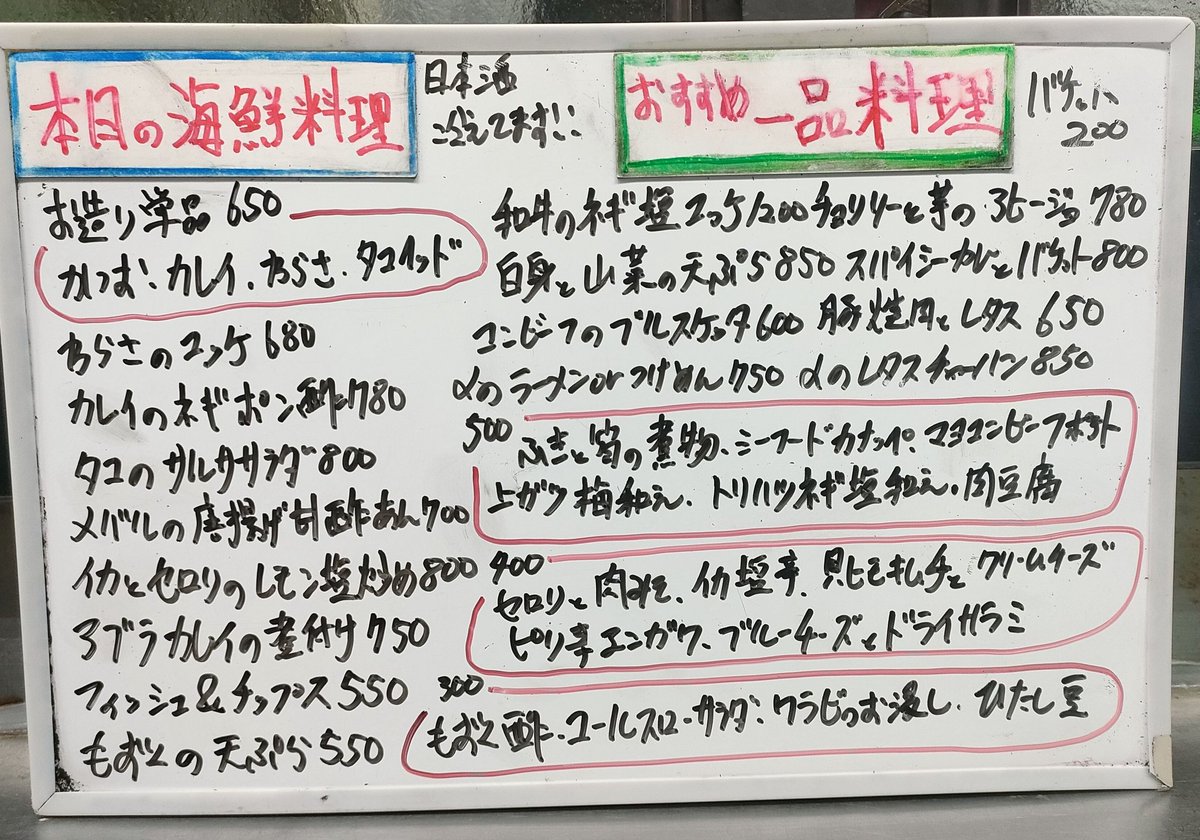 本日の海鮮料理
日本酒
冷えてます!!
お造り単品 650
かつお、カレイ、わらさ、タコイッド
わらさのユッケ 680
カレイのネギポン酢 780
タコのサルササラダ 800
メバルの唐揚げ甘酢あん 700
イカとセロリのレモン塩炒め 800
アブラカレイの煮付け 750
フィッシュ&チップス 550
もずくの天ぷら 550
おすすめ一品料理
バケット
200
和牛のネギ塩ユッケ1200 チョリソーと芋のアヒージョ 780
白身と山菜の天ぷら 850 スパイシーカレーとバケット 800
コンビーフのブルスケッタ 600 豚焼肉とレタス 650
αのラーメンorつけめん 750 αのレタスチャーハン 850
500
ふきと筍の煮物、シーフードカナッペ、マヨコンビーフポテト
上ガツ梅和え、トリハツネギ塩和え、肉豆腐
400
セロリと肉みそ、イカ塩辛、貝ヒモキムチとクリームチーズ
ピリ辛エンガワ、ブルーチーズとドライサラミ
300
もずく酢、コールスローサラダ、ワラビのお浸し、ひたし豆